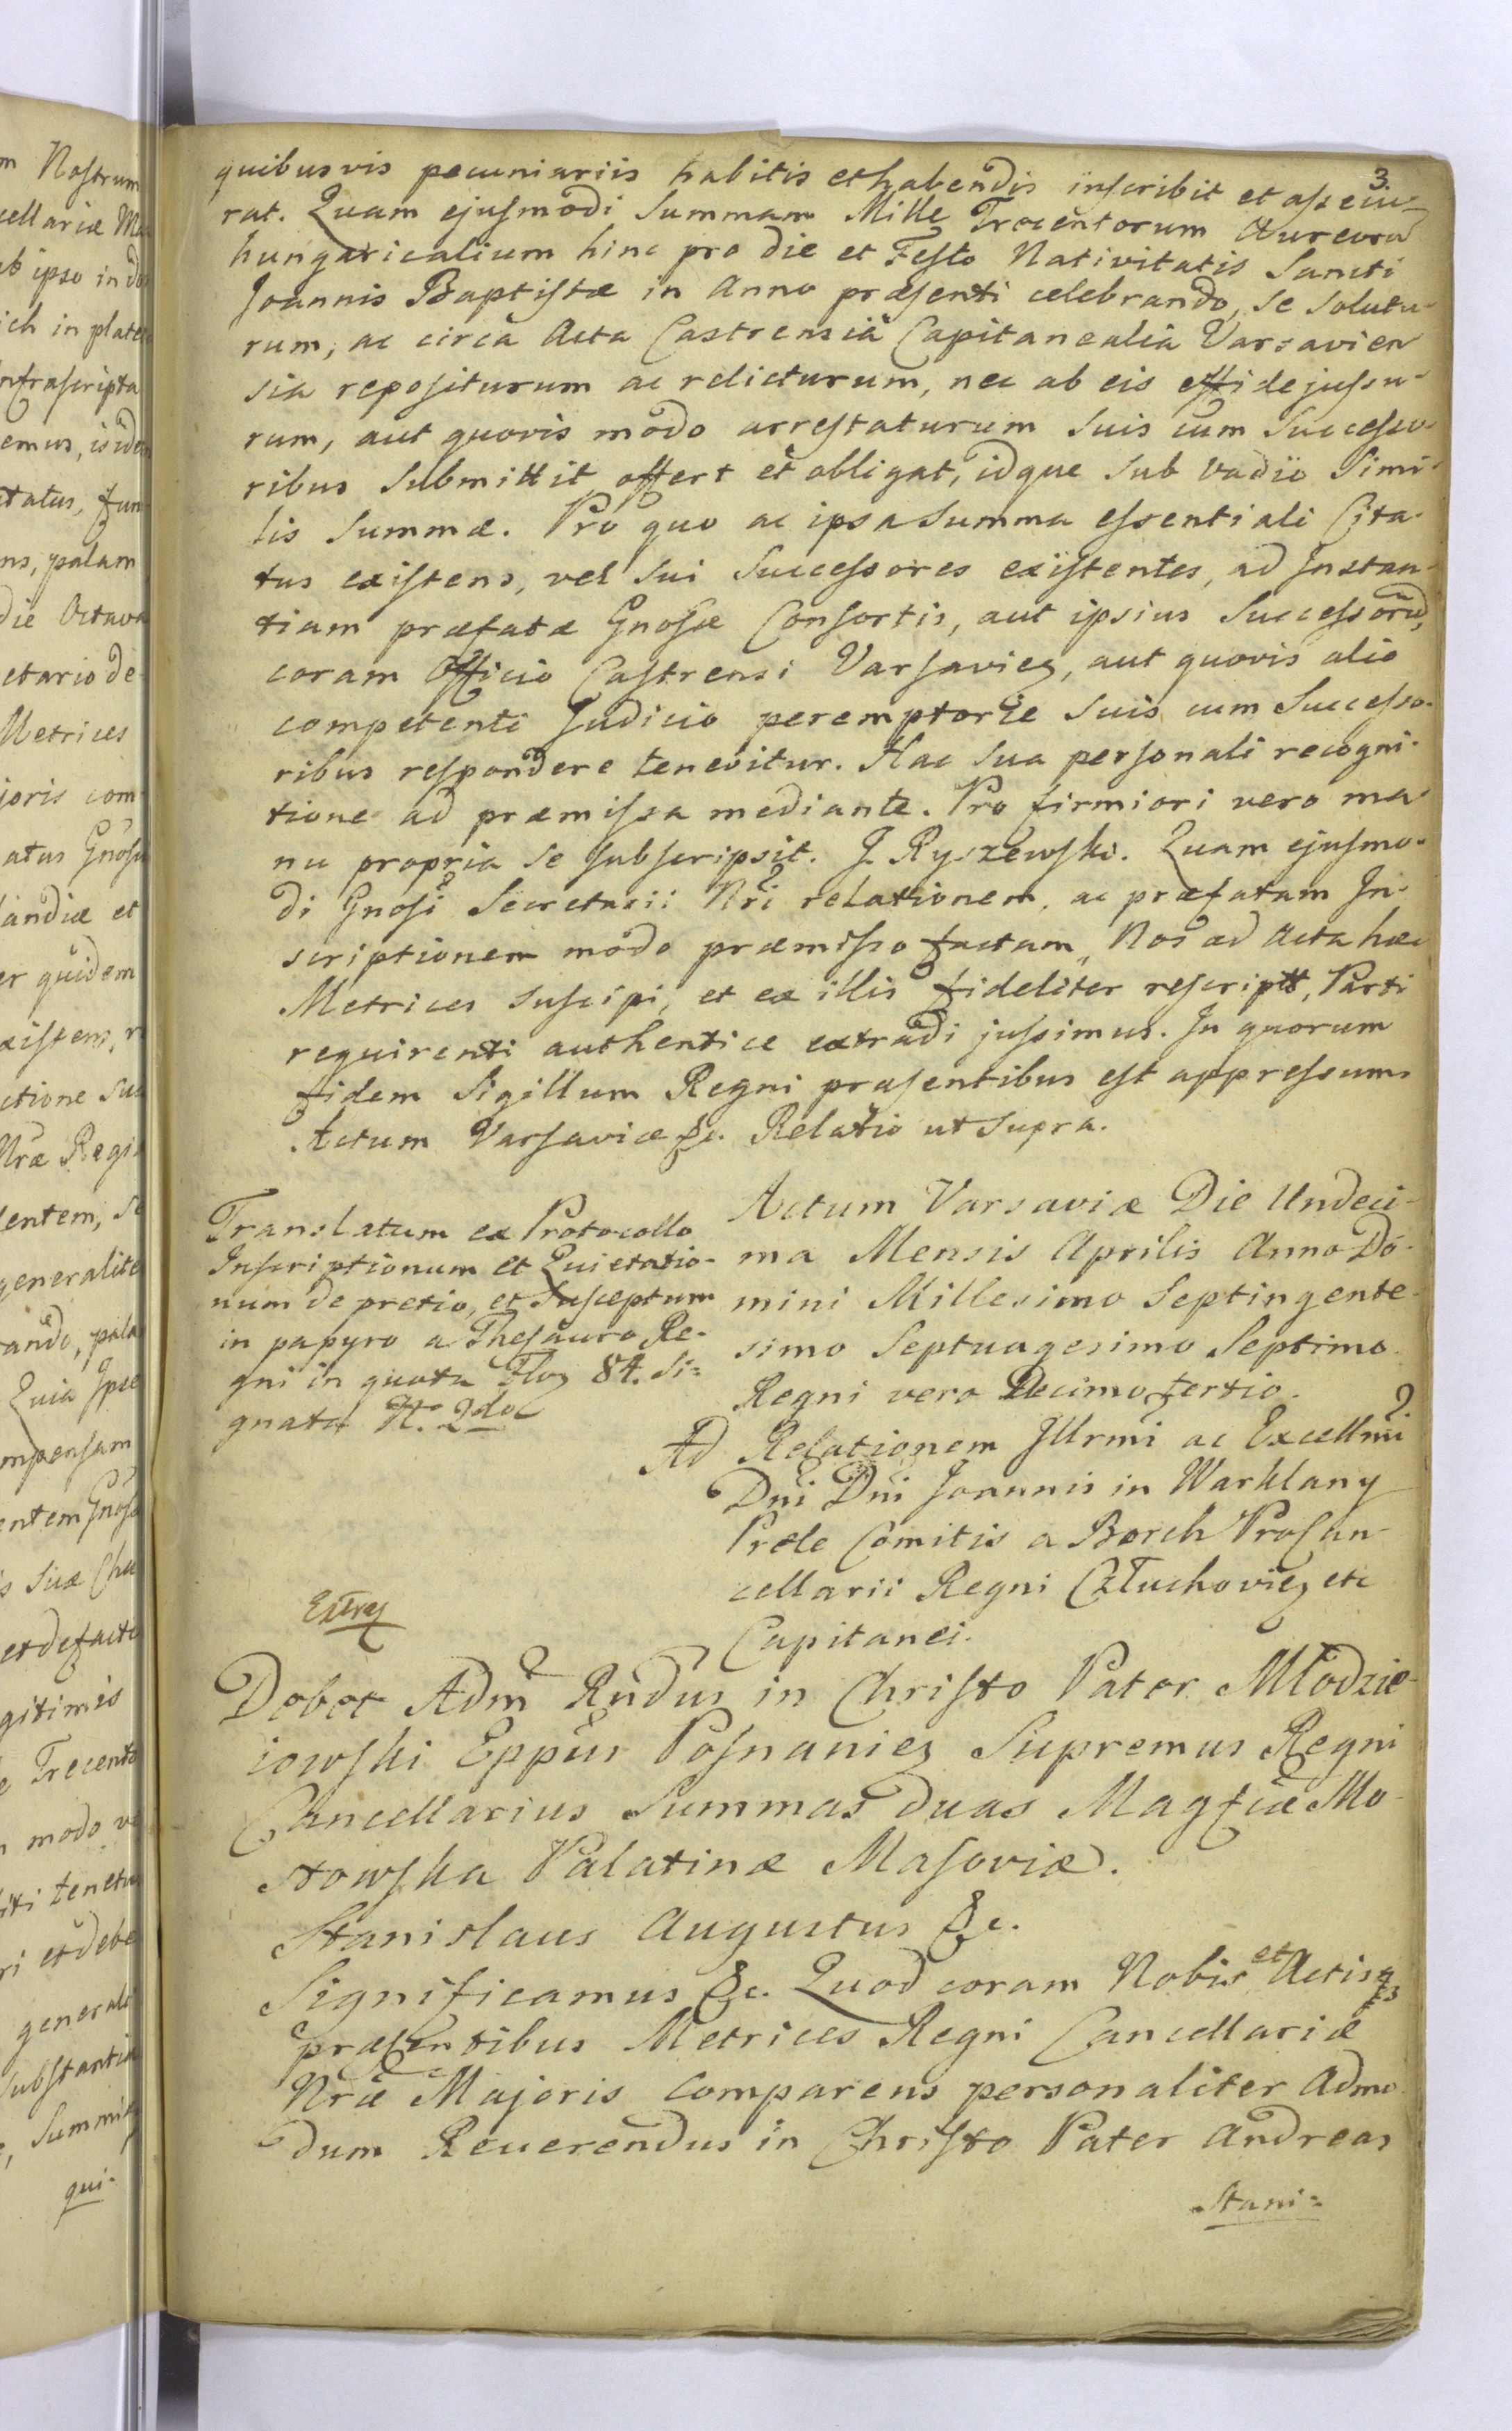 3.
quibusvis pecuniariis habitis et habendis inscribit et assecu-
rat. Quam ejusmodi Summam Mille Trecentorum Aureorū
hungaricalium hinc pro die et Festo Nativitatis Sancti
Joannis Baptistæ in Anno præsenti celebrando, se solutu-
rum, ac circa Acta Castrensia Capitanealia Varsavien
sia repositurum ac relicturum, nec ab eis effidejussu-
rum, aut quovis modo arrestaturum suis cum Successo-
ribus submittit offert et obligat, idque sub vadio Simi-
lis Summæ. Pro quo ac ipsa Summa essentiali Cita-
tus existens, vel sui Successores existentes, ad Instan-
tiam præfatæ Gnosæ Consortis, aut ipsius Successorū,
coram Officio Castrensi Varsavieṉ, aut quovis alio
competenti Judicio peremptorie suis cum Successo-
ribus respondere tenebitur. Hac sua personali recogni-
tione ad præmissa mediante. Pro firmiori vero ma-
nu propria se subscripsit. J. Ryszewski. Quam ejusmo-
di Gnosi Secretarii Nri relationem, ac præfatam In-
scriptionem modo præmisso factam, Nos ad Acta hæc
Metrices suscipi, et ex illis fideliter rescriptt, Parti
requirenti authentice extradi jussimus. In quorum
fidem Sigillum Regni præsentibus est appressum.
Actum Varsaviæ &c. Relatio ut supra.
Translatum ex Protocollo
Inscriptionum et Quietatio-
num de pretio, et Susceptum
in papyro a Thesauro Re-
gni in quota Flor 84. si=
gnata N. 2do
Actum Varsaviæ Die Undeci-
ma Mensis Aprilis Anno Do-
mini Millesimo Septingente-
simo Septuagesimo Septimo
Regni vero Decimo tertio.
Ad Relationem Illrmi ac Excellmi
Dni Dni Joannis in Warklany
Prele Comitis a Borch ProCan-
cellarii Regni Człuchovieṉ etc
Capitanei.
Debet Adm Rndus in Christo Pater Młodzie-
iowski Eppus Posnanieṉ Supremus Regni
Cancellarius Summas duas Magficæ Mo-
stowska Palatinæ Masoviæ.
Stanislaus Augustus &c.
Significamus &c. Quod coram Nobis et Actis
præsentibus Metrices Regni Cancellariæ
Nræ Majoris Comparens personaliter Admo
dum Reverendus in Christo Pater Andreas
Stani=